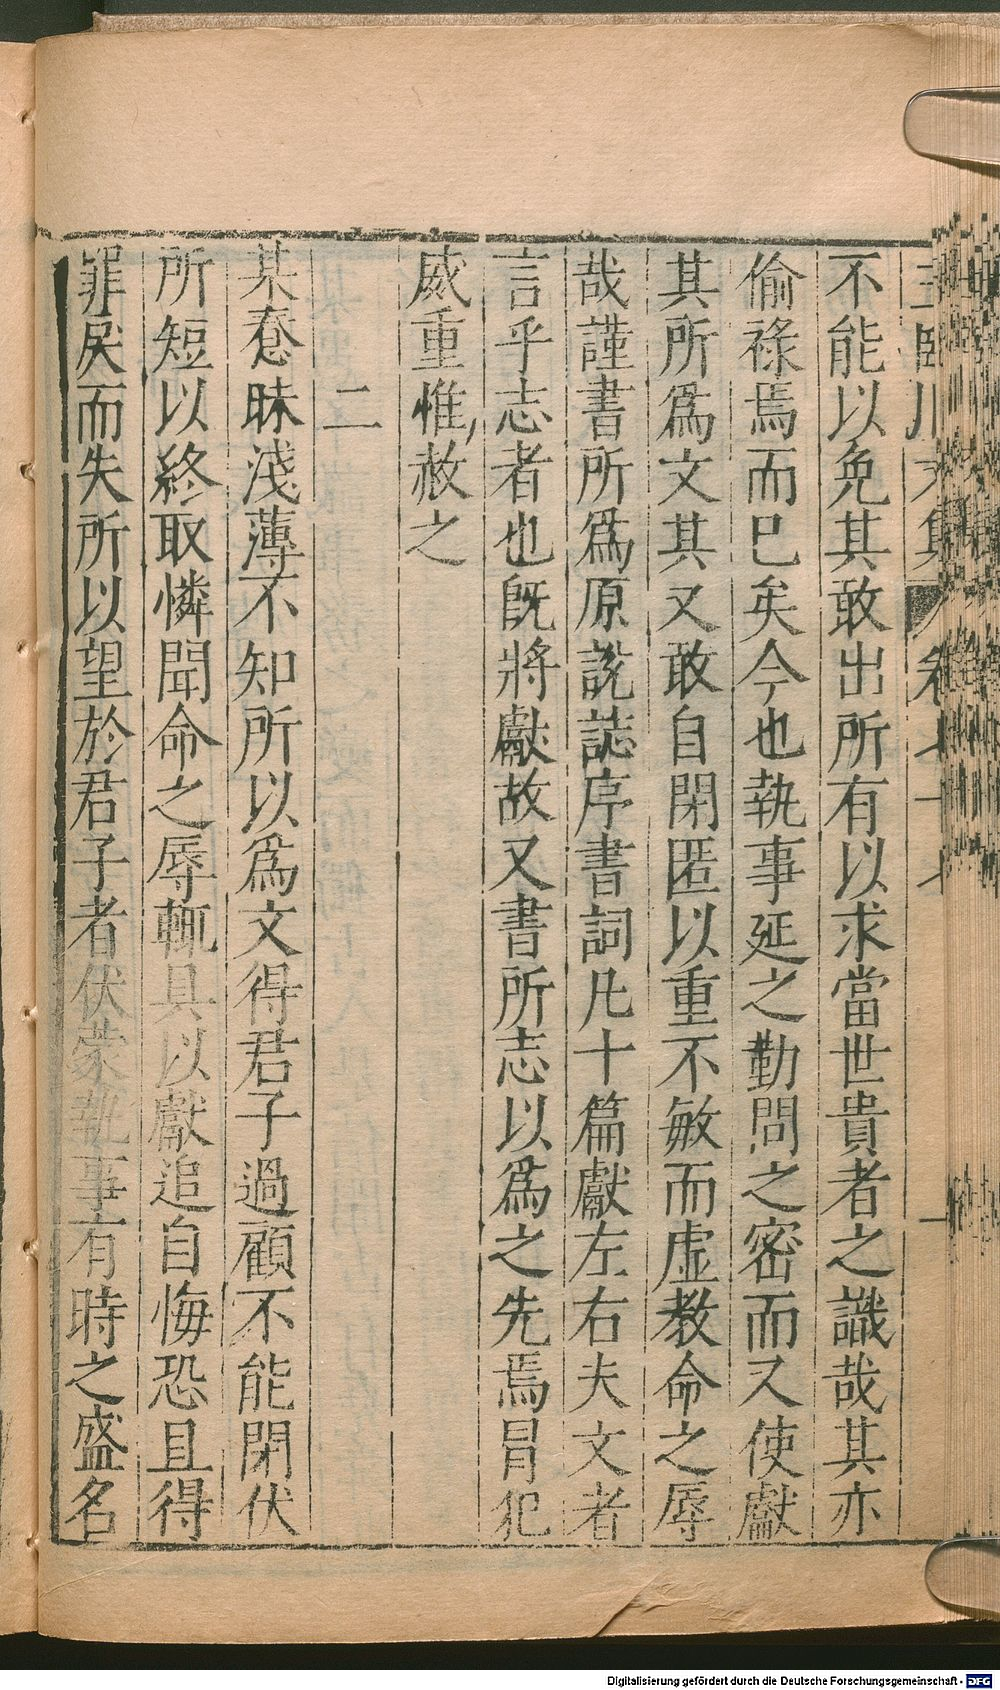 不能以免其敢出所有以求當世貴者之識哉其亦
偷祿焉而已矣今也執事延之勤問之密而又使獻
其所爲文其又敢自閉匿以重不敏而虛教命之辱
哉謹書所爲原說誌序書詞凡十篇獻左右夫文者
言乎志者也旣將獻故又書所志以爲之先焉冐犯
威重惟赦之
二
某惷昧淺薄不知所以爲文得君子過顧不能閉伏
所短以終取憐聞命之辱輒具以獻追自悔恐且得
罪戾而失所以望於君子者伏蒙執事有時之盛名
Digitalisierung gefördert durch die Deutsche Forschungsgemeinschaft - DFG